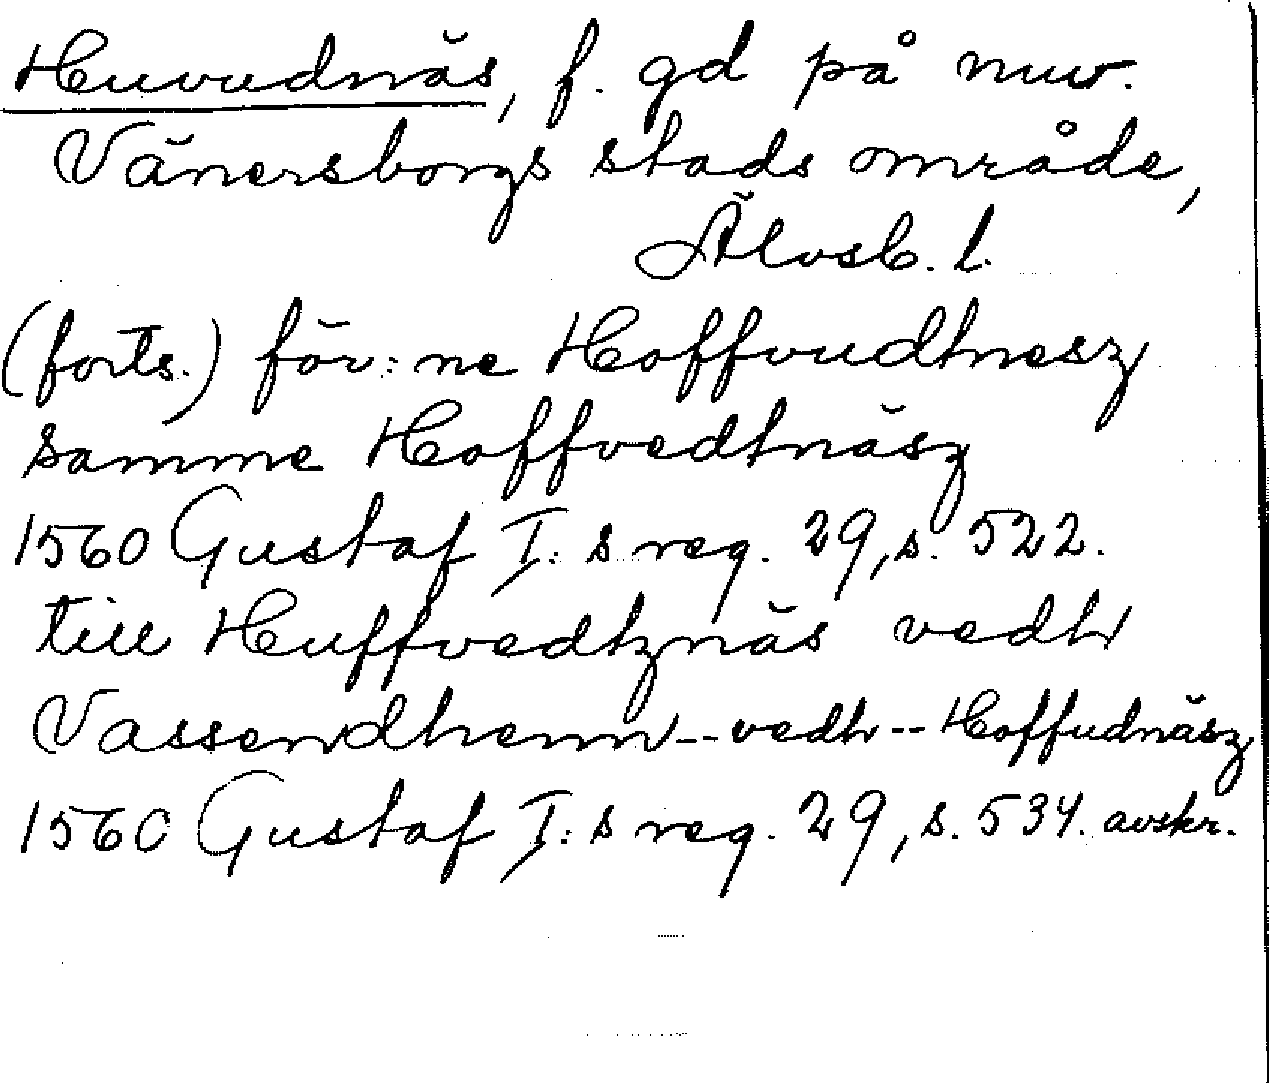 Huvudnäs, f. gd på nuv.
Vänersborgs stads område,
Älvsb. l.
(forts.) för:ne Hoffvudhnesz
samme Hoffvedhnäsz
1560 Gustaf I:s reg. 29, s. 522.
till Huffvedhznäs vedh
Vassendhenn -- vedh -- Hoffudnäsz
1560 Gustaf I:s reg. 29, s. 534. avskr.